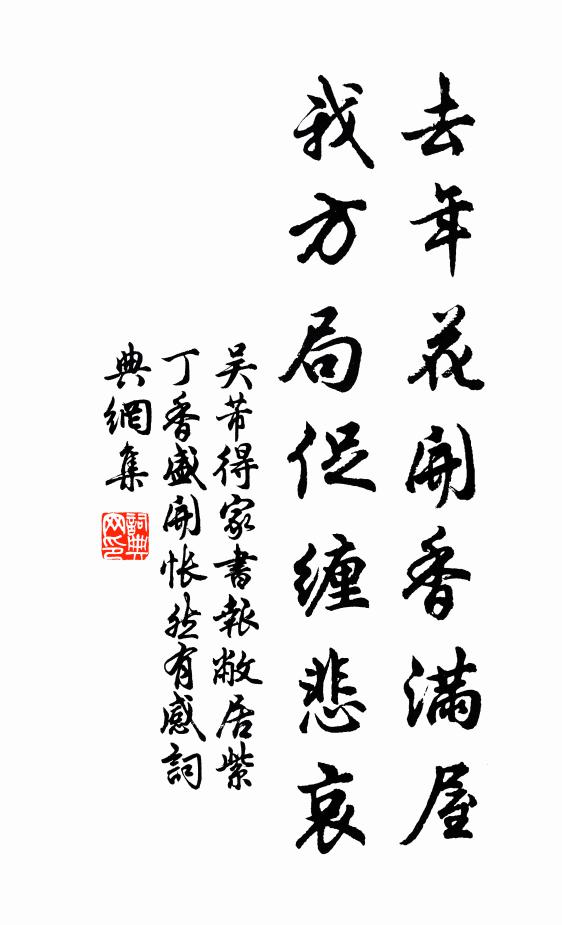 去年花開香滿屋
我方局促纏悲哀
吴芾得家書報敝居紫
丁香盛開悵然有感詞
典網集
詞典
网印